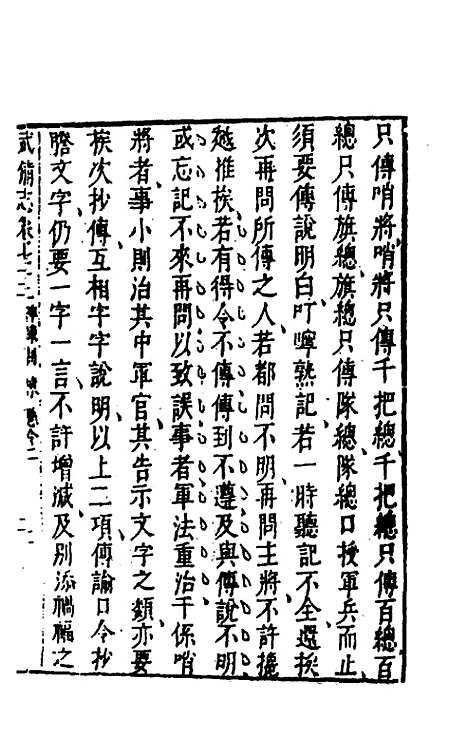 只傳哨將哨將只傳千把總千把總只傳百總百
總只傳旗總旗總只傳隊總隊總口授軍兵而止
須要傳說明白叮嚀熟記若一時聽記不全還挨
次再問所傳之人若都問不明再問主將不許攙
越推挨若有得令不傳傳到不遵及與傳說不明
或忘記不來再問以致誤事者軍法重治干係哨
將者事小則治其中軍官其告示文字之類亦要
挨次抄傳互相字字說明以上二項傳諭口令抄
謄文字仍要一字一言不許增減及別添禍福之
武備志卷七十二 陣練制 練 令二 二